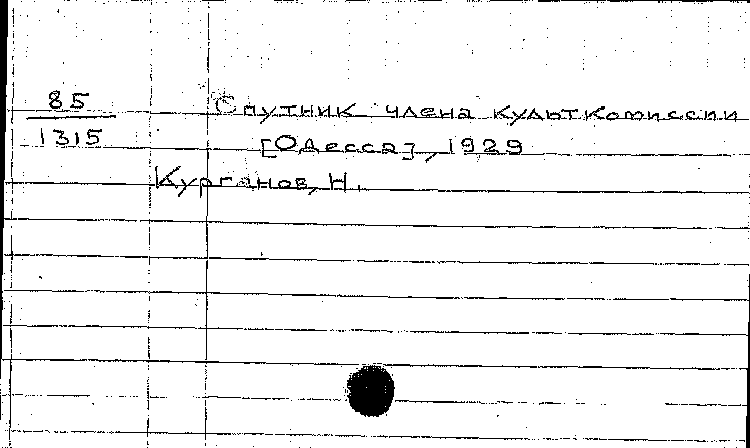 85
1315
Спутник члена культкомиссии
[Одесса], 1929
Курганов, Н.